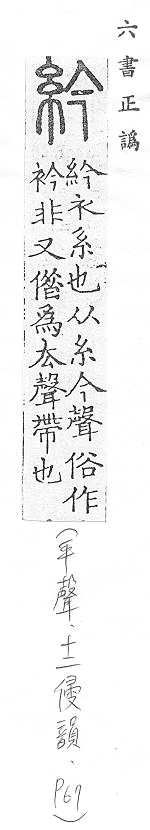 六書正譌
紟
紟衣系也从糸今聲俗作
衿非又僭爲厺聲帶也
(平聲．十二侵韻．P67)